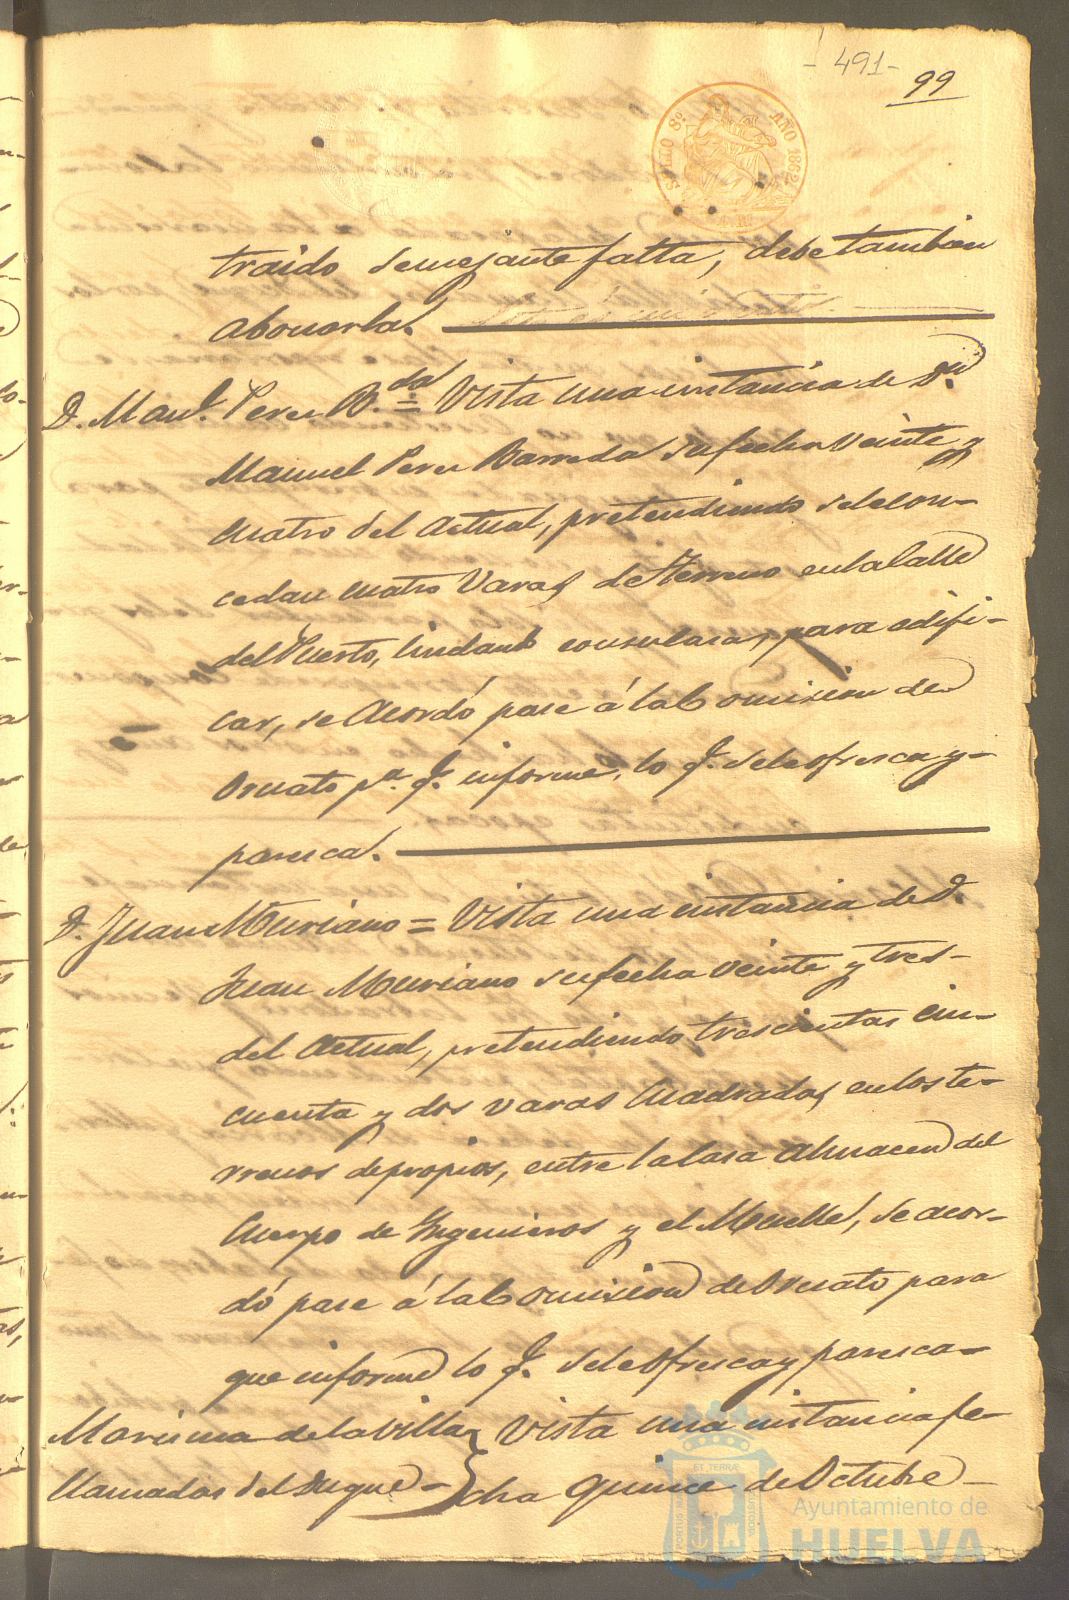 - 491 -
99
SELLO 8º AÑO 1862
traido semejante falta, debe tambien
abonarla.
D. Man.l Perez B.da = Vista una instancia de Dn.
Manuel Perez Barreda su fecha veinte y
cuatro del actual, pretendiendo se le con-
cedan cuatro varas de terreno en la Calle
del Puerto, lindante con su casa, para edifi-
car, se acordó pase á la Comision de
Ornato pa. q.e informe, lo q.e se le ofresca y
paresca.
D. Juan Muriano = Vista una instancia de D.
Juan Muriano su fecha veinte y tres
del actual, pretendiendo trescientas cin-
cuenta y dos varas cuadradas en los te-
rrenos de propios, entre la Casa Almacen del
Cuerpo de Yngenieros y el Muelle, se acor-
dó pase á la Comision de Ornato para
que informe lo q.e se le ofresca y paresca
Marisma de la Villa } Vista una instancia fe-
llamadas del Duque } cha quince de Octubre
PORTUS MARIS ET TERRÆ CUSTODIA
Ayuntamiento de
HUELVA